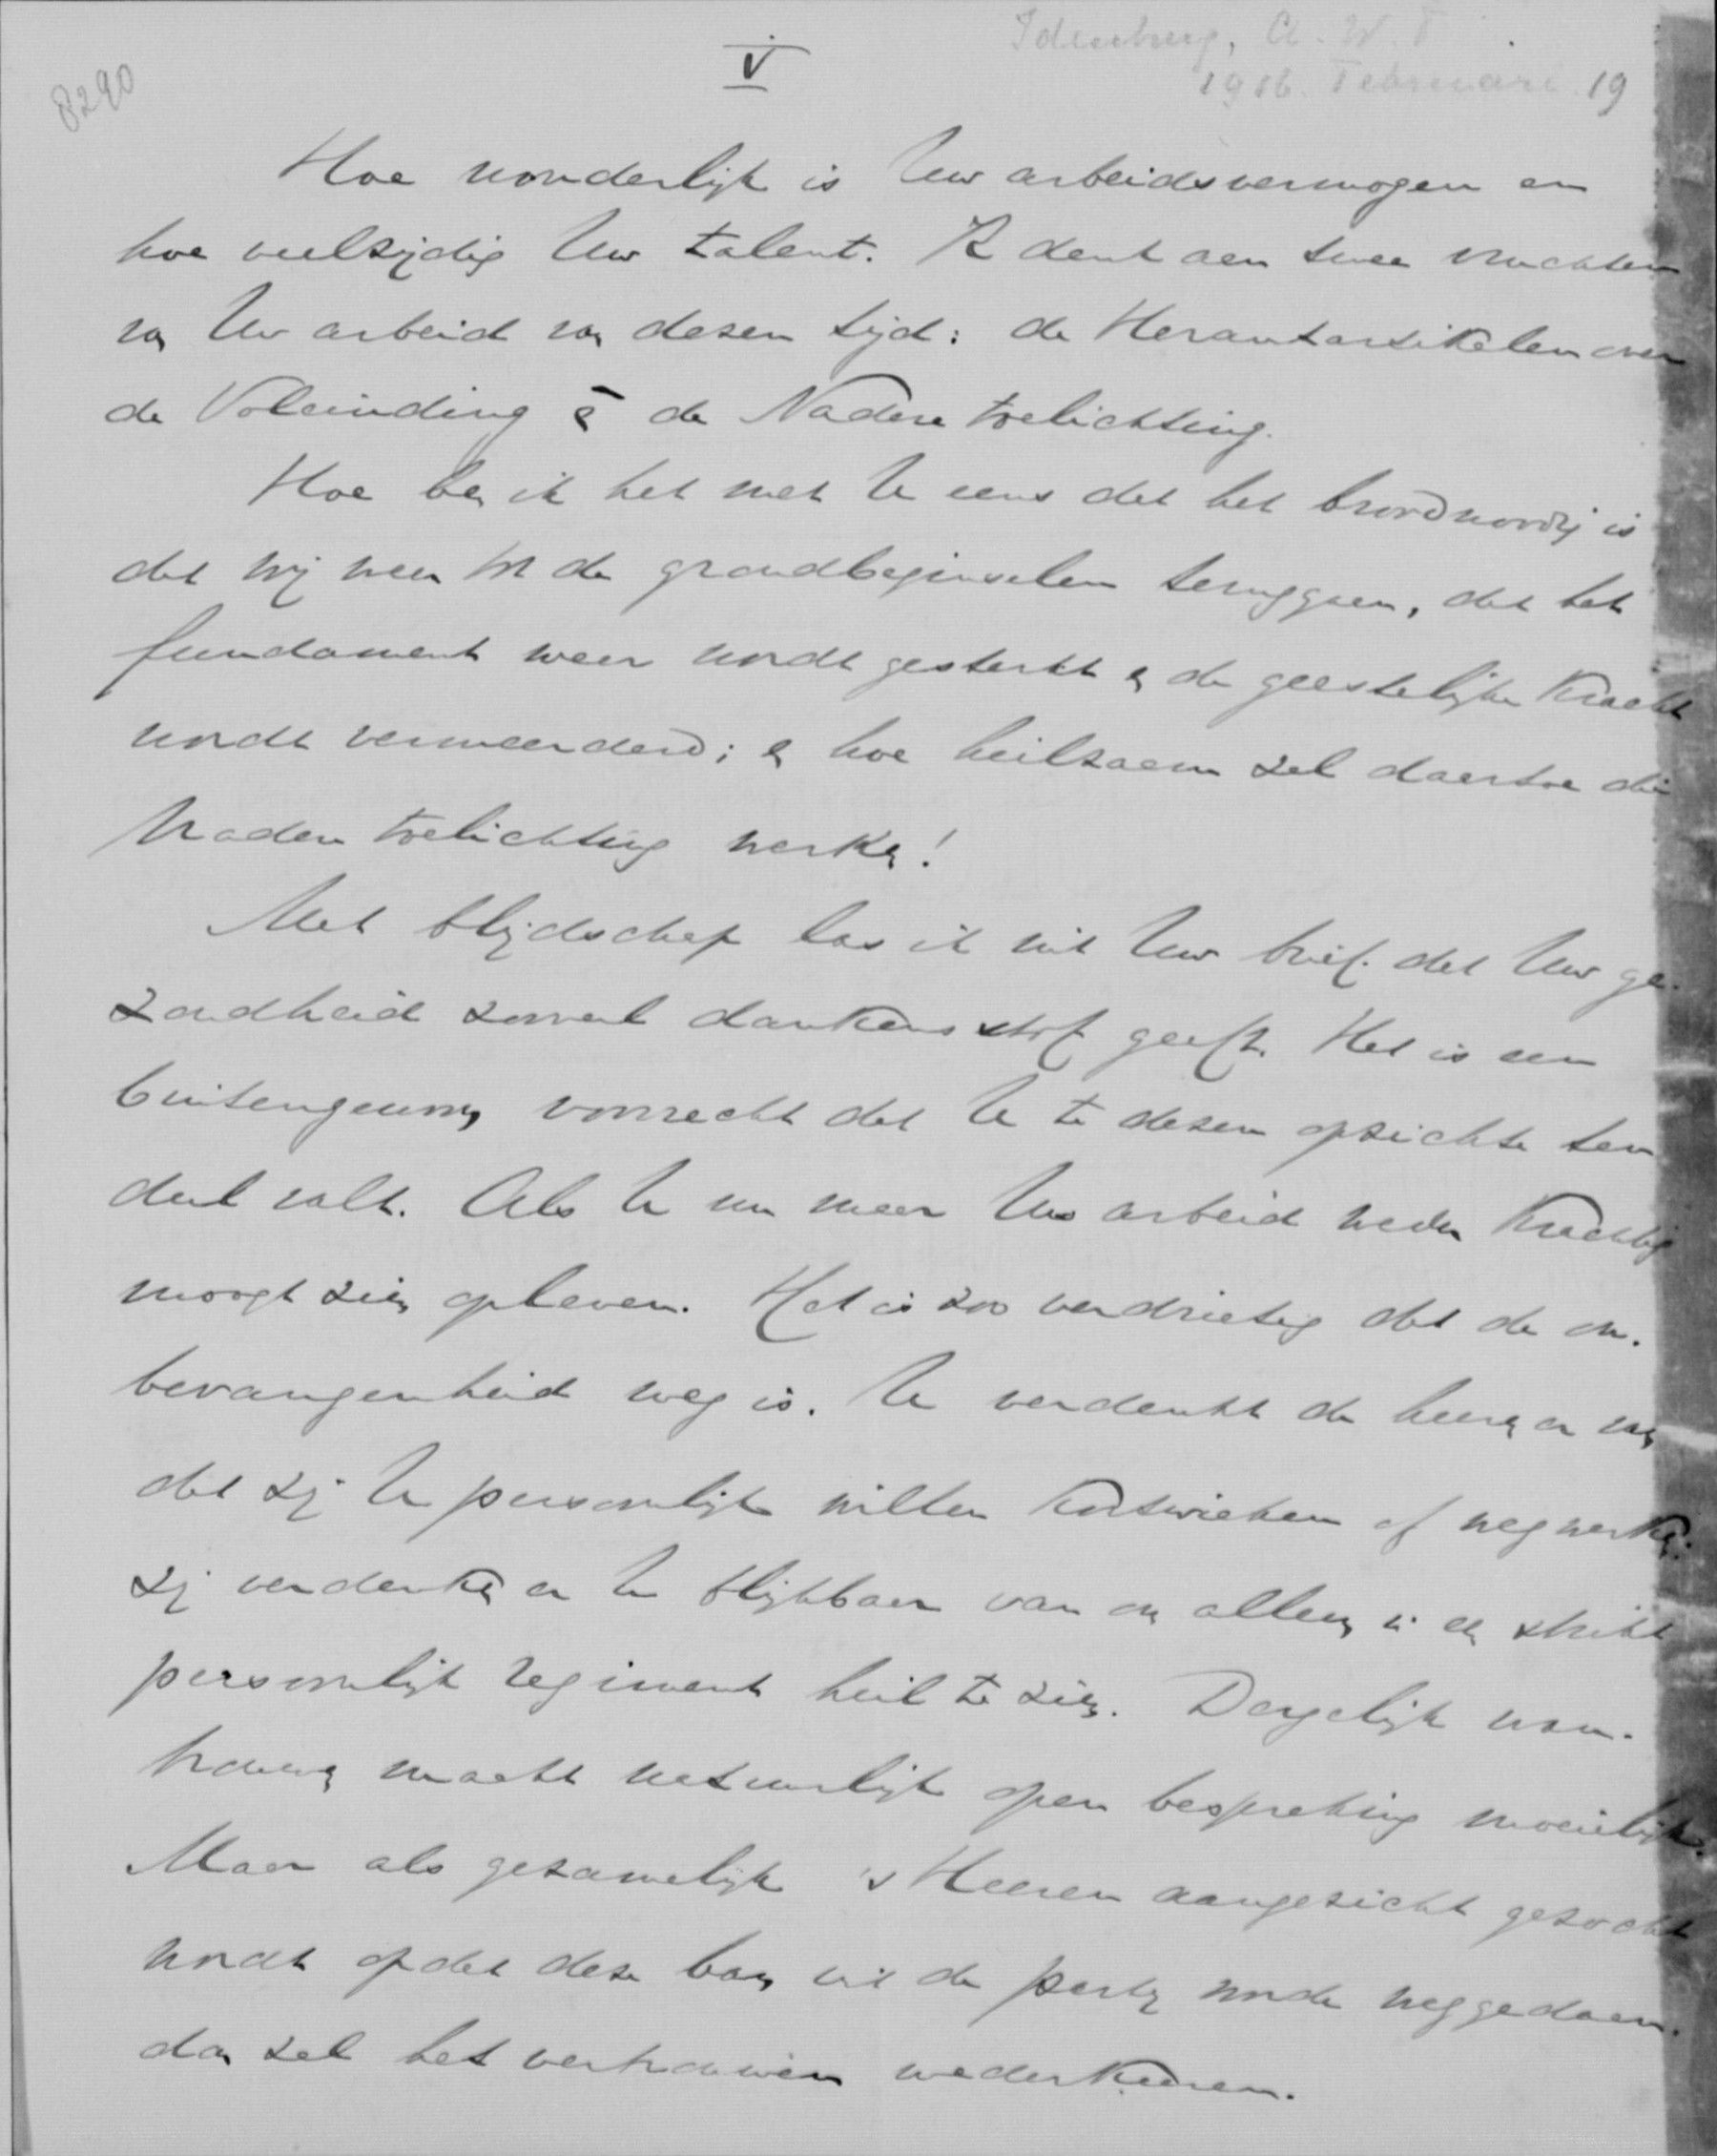 8290
V
Idenburg, A. W. F
1916. Februari. 19
Hoe wonderlijk is Uw arbeidsvermogen en
hoe veelzijdig Uw talent. Ik denk aan twee vruchten
van Uw arbeid van dezen tijd: de Herautartikelen over
de Voleinding en de Nadere toelichting.
Hoe ben ik het met U eens dat het broodnoodig is
dat wij weer tot de grondbeginselen teruggaan, dat het
fundament weer wordt gesterkt en de geestelijke kracht
wordt vermeerderd; en hoe heilzaam zal daartoe die
Nadere toelichting werken!
Met blijdschap las ik uit Uw brief dat Uw ge-
zondheid zooveel dankensstof geeft. Het is een
buitengewoon voorrecht dat U te dezen opzichte ten
deel valt. Als U nu maar Uw arbeid weder krachtig
moogt zien opleven. Het is zoo verdrietig dat de on-
bevangenheid weg is. U verdenkt de heeren er van
dat zij U persoonlijk willen kortwieken of wegwerken.
zij verdenken er U blijkbaar van om alleen in een strikt
persoonlijk regiment heil te zien. Dergelijk wan-
trouwen maakt natuurlijk open bespreking moeielijk.
Maar als gezamelijk 's Heeren aangezicht gezocht
wordt opdat deze ban uit de partij worde weggedaan.
dan zal het vertrouwen wederkeeren.